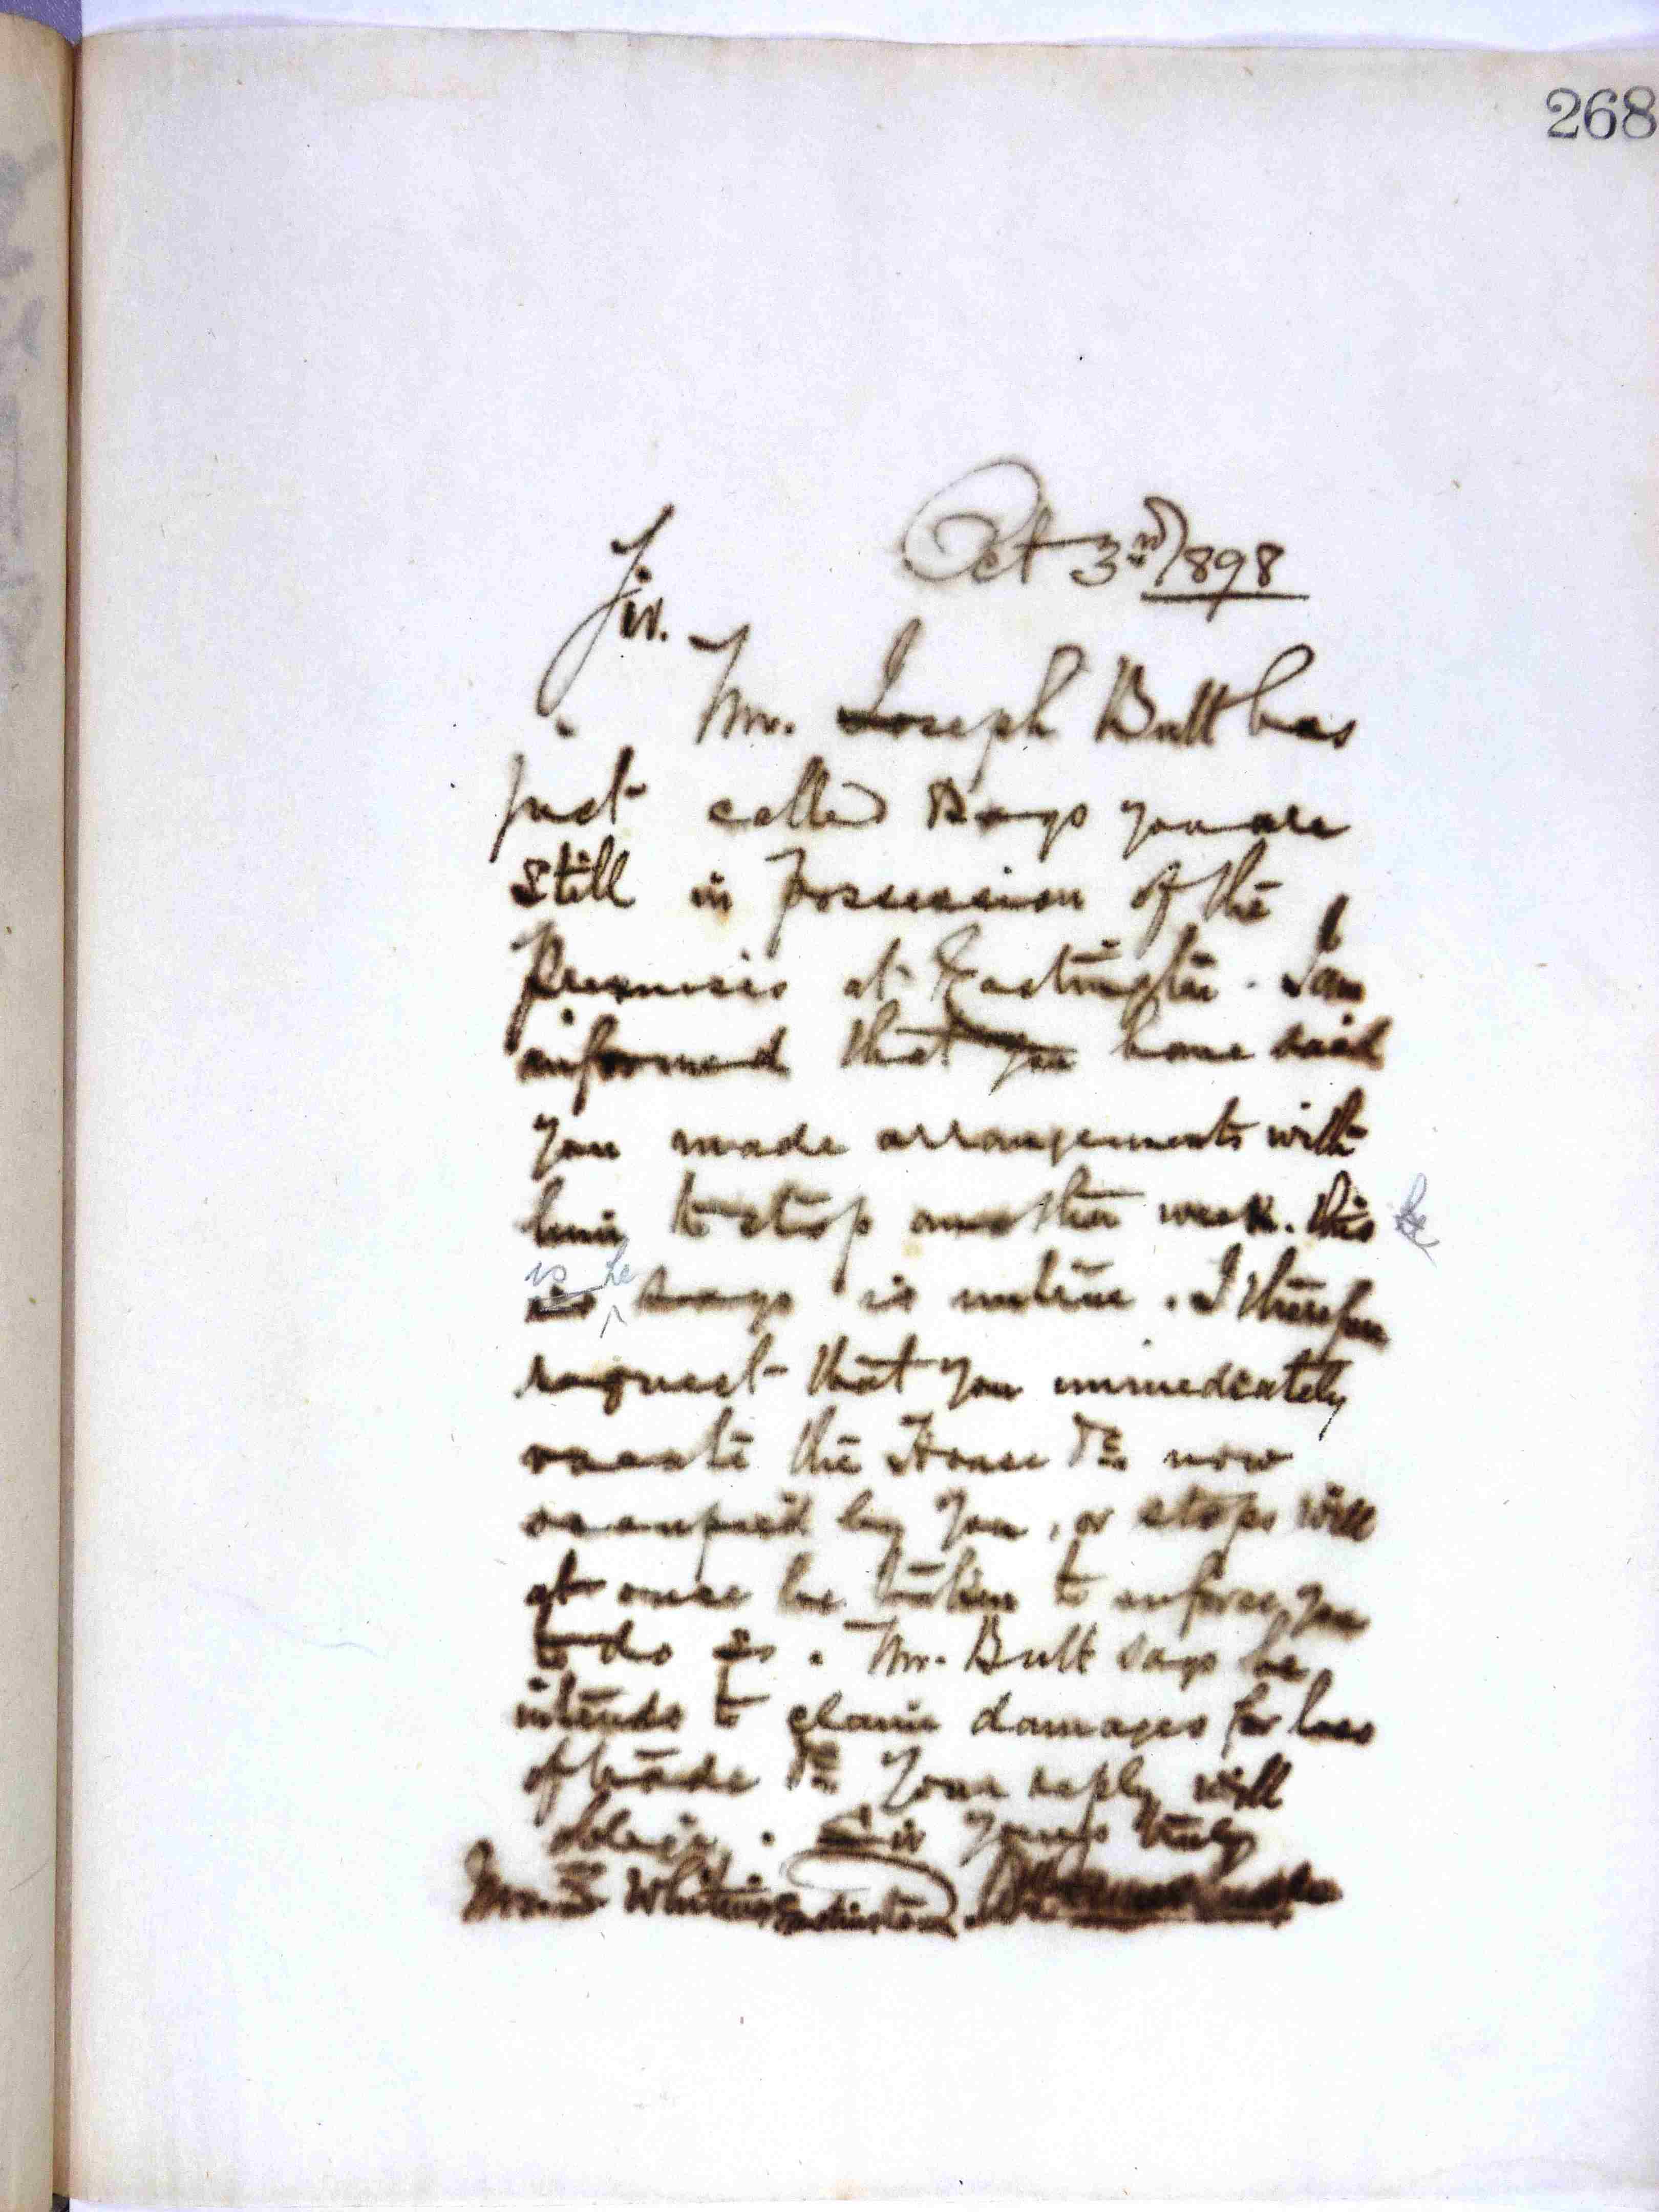 268
Oct 3rd/1898
Sir.
Mr. Joseph Butt has
just called & says you are
still in possession of the
Premises at Eastington. I am
informed that you have said
you made arrangements with
him to stop another week. this he
is he
is says is untrue. I therefore
request that you immediately
vacate the House &c now
occupied by you, or steps will
at once be taken to enforce you
to do so. Mr. Butt says he
intends to claim damages for loss
of trade &c Your reply will
oblige. Sir Yours truly
Whiting Eastington